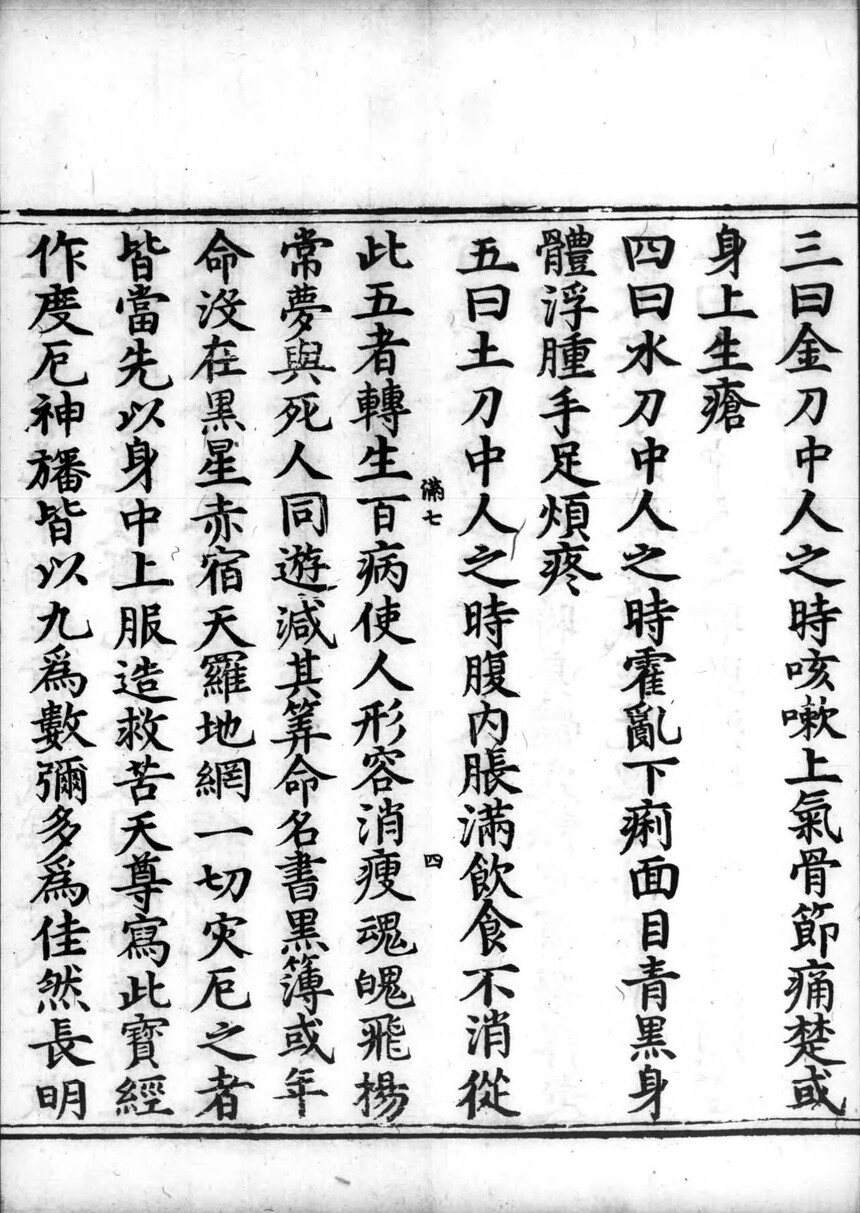 三曰金刀中人之時咳嗽上氣骨節痛楚或
身上生瘡
四曰水刀中人之時霍亂下痢面目青黑身
體浮腫手足煩疼
五曰土刀中人之時腹內脹滿飲食不消從
滿七
四
此五者轉生百病使人形容消瘦魂魄飛揚
常夢與死人同遊減其筭命名書黑簿或年
命沒在黑星赤宿天羅地網一切灾厄之者
皆當先以身中上服造救苦天尊寫此寶經
作度厄神旛皆以九爲數彌多爲佳然長明